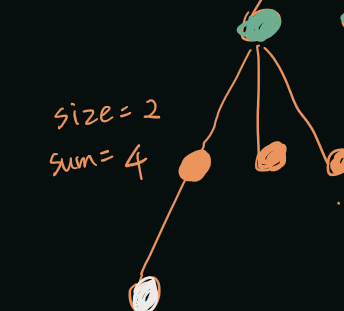 size = 2
sum = 4